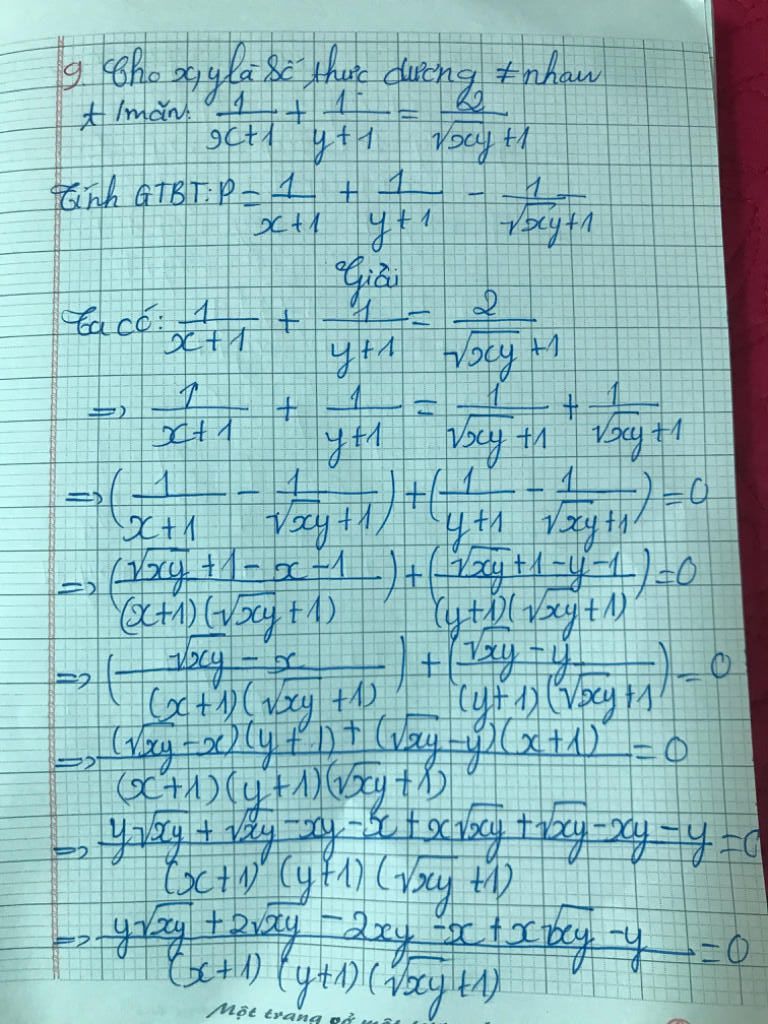 9. Cho x, y là số thực dương ≠ nhau
t/mãn: 1/(x+1) + 1/(y+1) = 2/(√xy+1)
Tính GTBT: P = 1/(x+1) + 1/(y+1) - 1/(√xy+1)
Giải
Ta có: 1/(x+1) + 1/(y+1) = 2/(√xy+1)
=> 1/(x+1) + 1/(y+1) = 1/(√xy+1) + 1/(√xy+1)
=> (1/(x+1) - 1/(√xy+1)) + (1/(y+1) - 1/(√xy+1)) = 0
=> ((√xy+1-x-1)/((x+1)(√xy+1))) + ((√xy+1-y-1)/((y+1)(√xy+1))) = 0
=> ((√xy-x)/((x+1)(√xy+1))) + ((√xy-y)/((y+1)(√xy+1)) = 0
=> ((√xy-x)(y+1)+(√xy-y)(x+1))/((x+1)(y+1)(√xy+1)) = 0
=> (y√xy+√xy-xy-x+x√xy+√xy-xy-y)/((x+1)(y+1)(√xy+1)) = 0
=> (y√xy+2√xy-2xy-x+x√xy-y)/((x+1)(y+1)(√xy+1)) = 0
Một trang vở